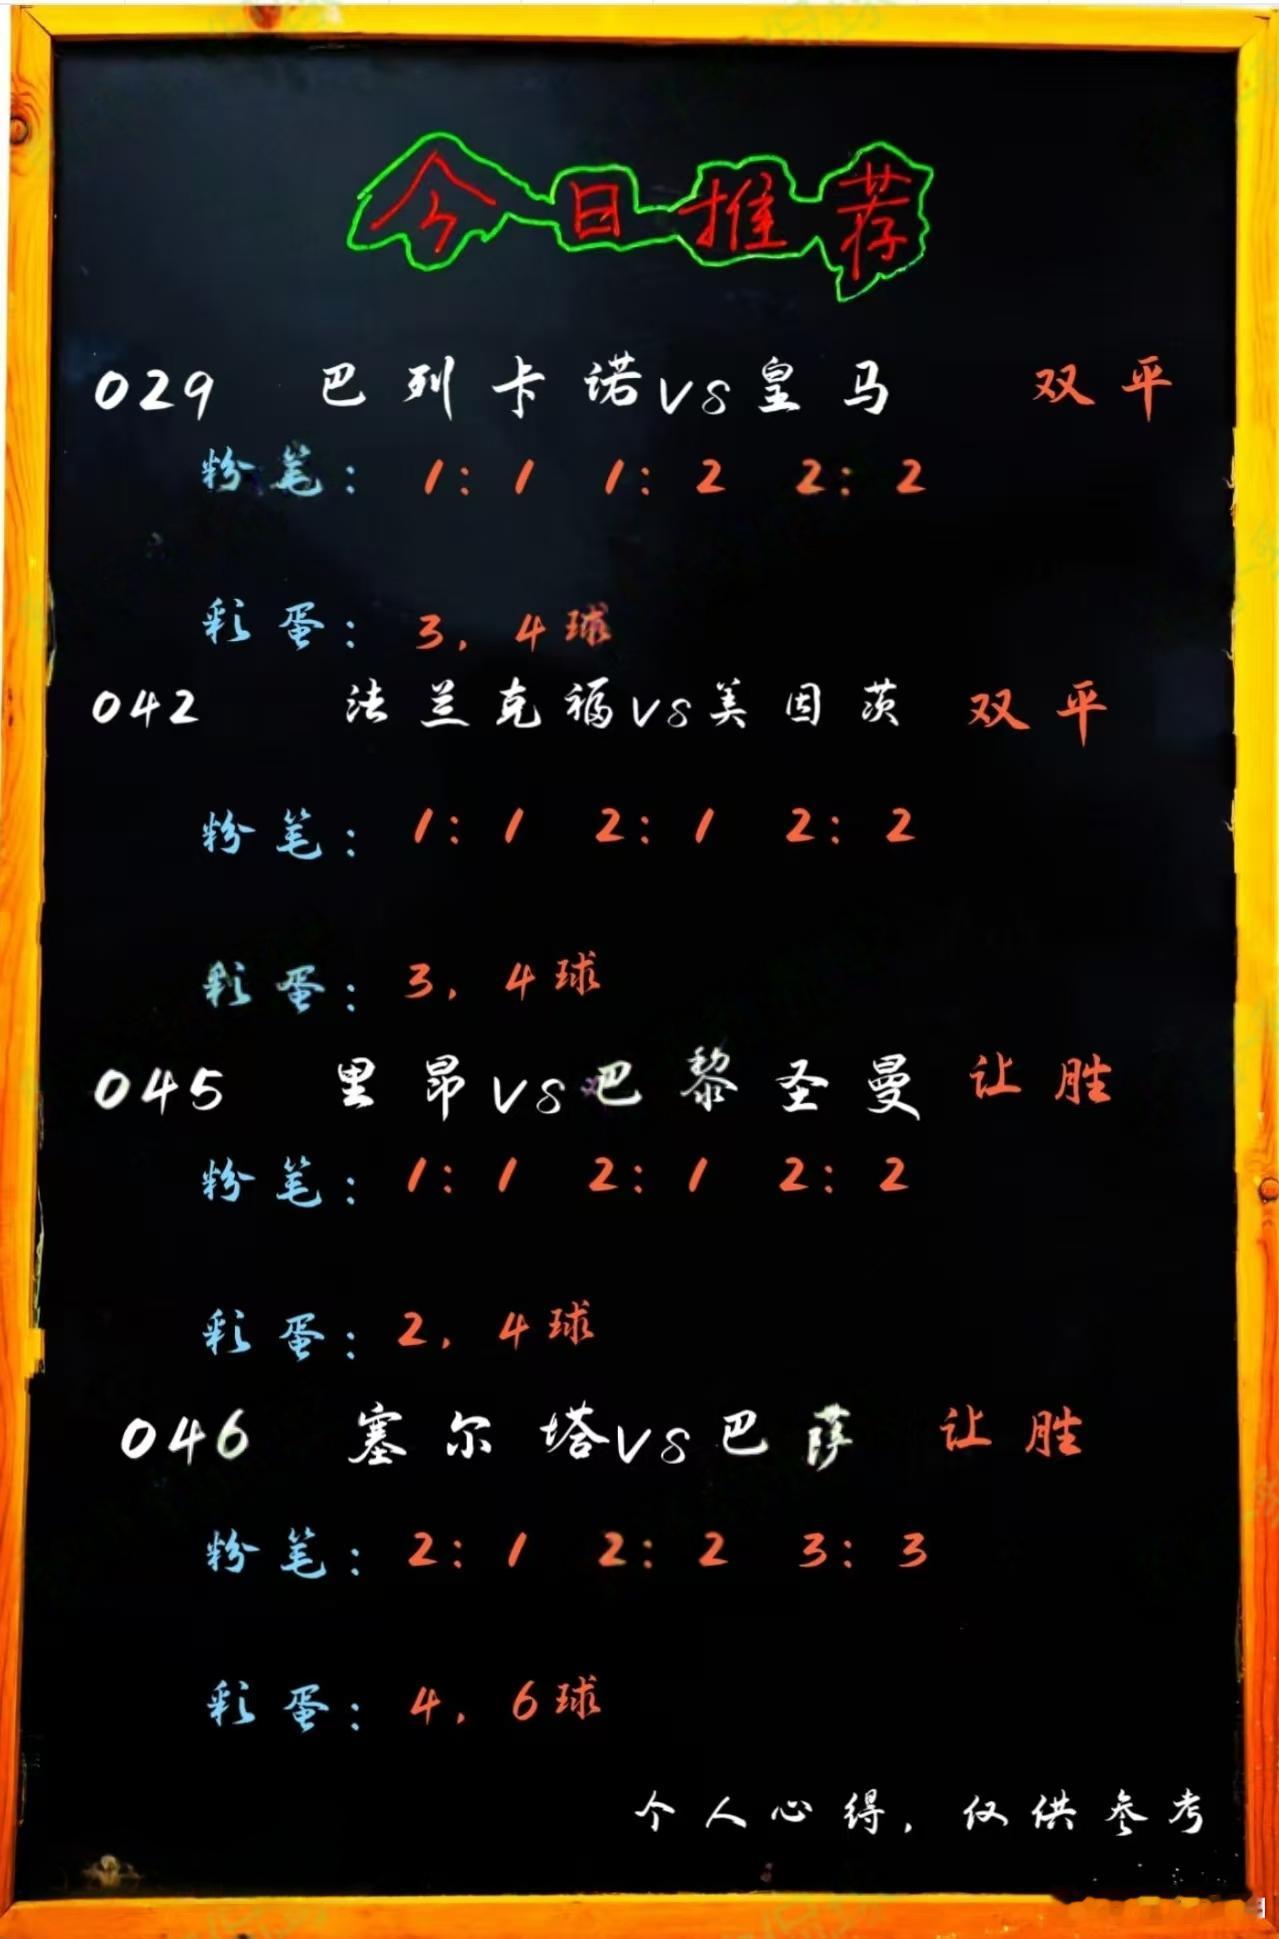 今日推荐
029 巴列卡诺VS皇马 双平
粉笔：1:1 1:2 2:2
彩蛋：3，4球
042 法兰克福VS美因茨 双平
粉笔：1:1 2:1 2:2
彩蛋：3，4球
045 里昂VS巴黎圣曼 让胜
粉笔：1:1 2:1 2:2
彩蛋：2，4球
046 塞尔塔VS巴萨 让胜
粉笔：2:1 2:2 3:3
彩蛋：4，6球
个人心得，仅供参考